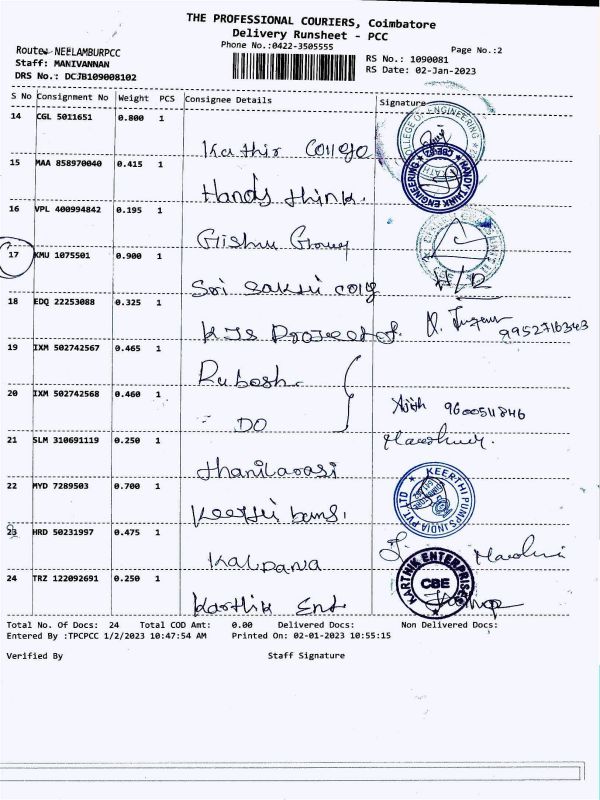 THE PROFESSIONAL COURIERS, Coimbatore
Delivery Runsheet - PCC
Phone No.:0422-3505555
Page No.:2
Route: NEELAMBURPCC
Staff: MANIVANNAN
DRS No.: DCJB109008102
RS No.: 1090081
RS Date: 02-Jan-2023
S No Consignment No Weight PCS Consignee Details Signature
14 CGL 5011651 0.800 1
Kathir College
15 MAA 858970040 0.415 1
Hands think.
16 VPL 400994842 0.195 1
Group
17 KMU 1075501 0.900 1
Sri Sakthi colg
18 EDQ 22253088 0.325 1
KJS 9952716343
19 IXM 502742567 0.465 1
Rubosh
20 IXM 502742568 0.460 1
DO
Ajith 9600511846
21 SLM 310691119 0.250 1
thanilarasi
22 MYD 7289503 0.700 1
KEERTHI PUMPS INDIA PVT LTD
23 HRD 50231997 0.475 1
Kalpana
24 TRZ 122092691 0.250 1
Karthik Ent
KARTHIK ENTERPRISES
CBE
Total No. Of Docs: 24 Total COD Amt: 0.00 Delivered Docs: Non Delivered Docs:
Entered By :TPCPCC 1/2/2023 10:47:54 AM Printed On: 02-01-2023 10:55:15
Verified By Staff Signature